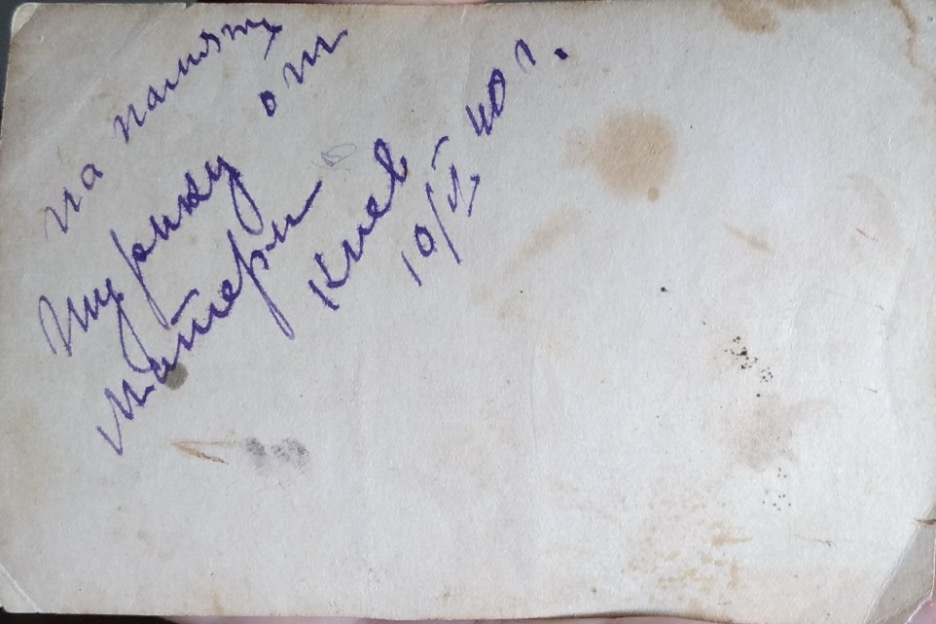 на память
Шурику от
матери
Киев
10/II 40 г.